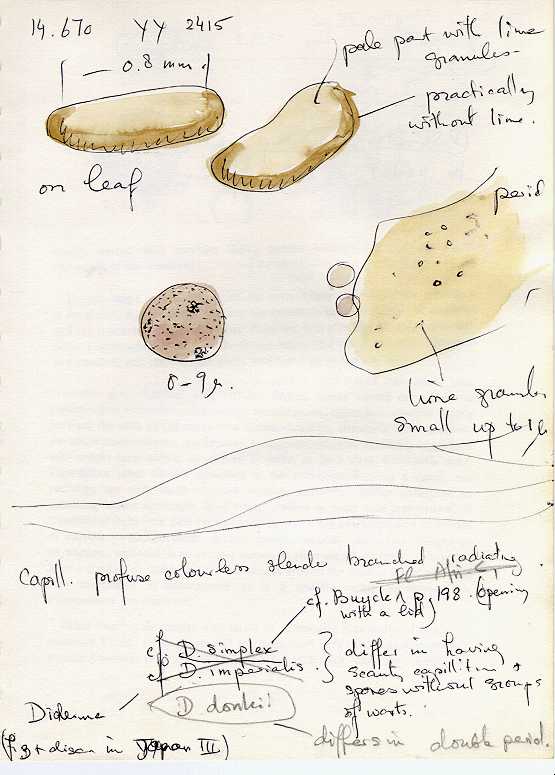 14.670 YY 2415
0.8 mm.
pale part with lime
granules
practically
without lime.
on leaf
perid
8-9 µ.
lime granules
small up to 1µ
Capill. profuse colourless slender branched radiating.
cf. Buyck p. 198. (opening
with a lid)
cf. D. simplex
cf. D. imperialis.
differ in having
scanty capillitium +
spores without groups
of warts.
D donkii
Diderma
differs in double perid.
(fig + discn in Japan III)